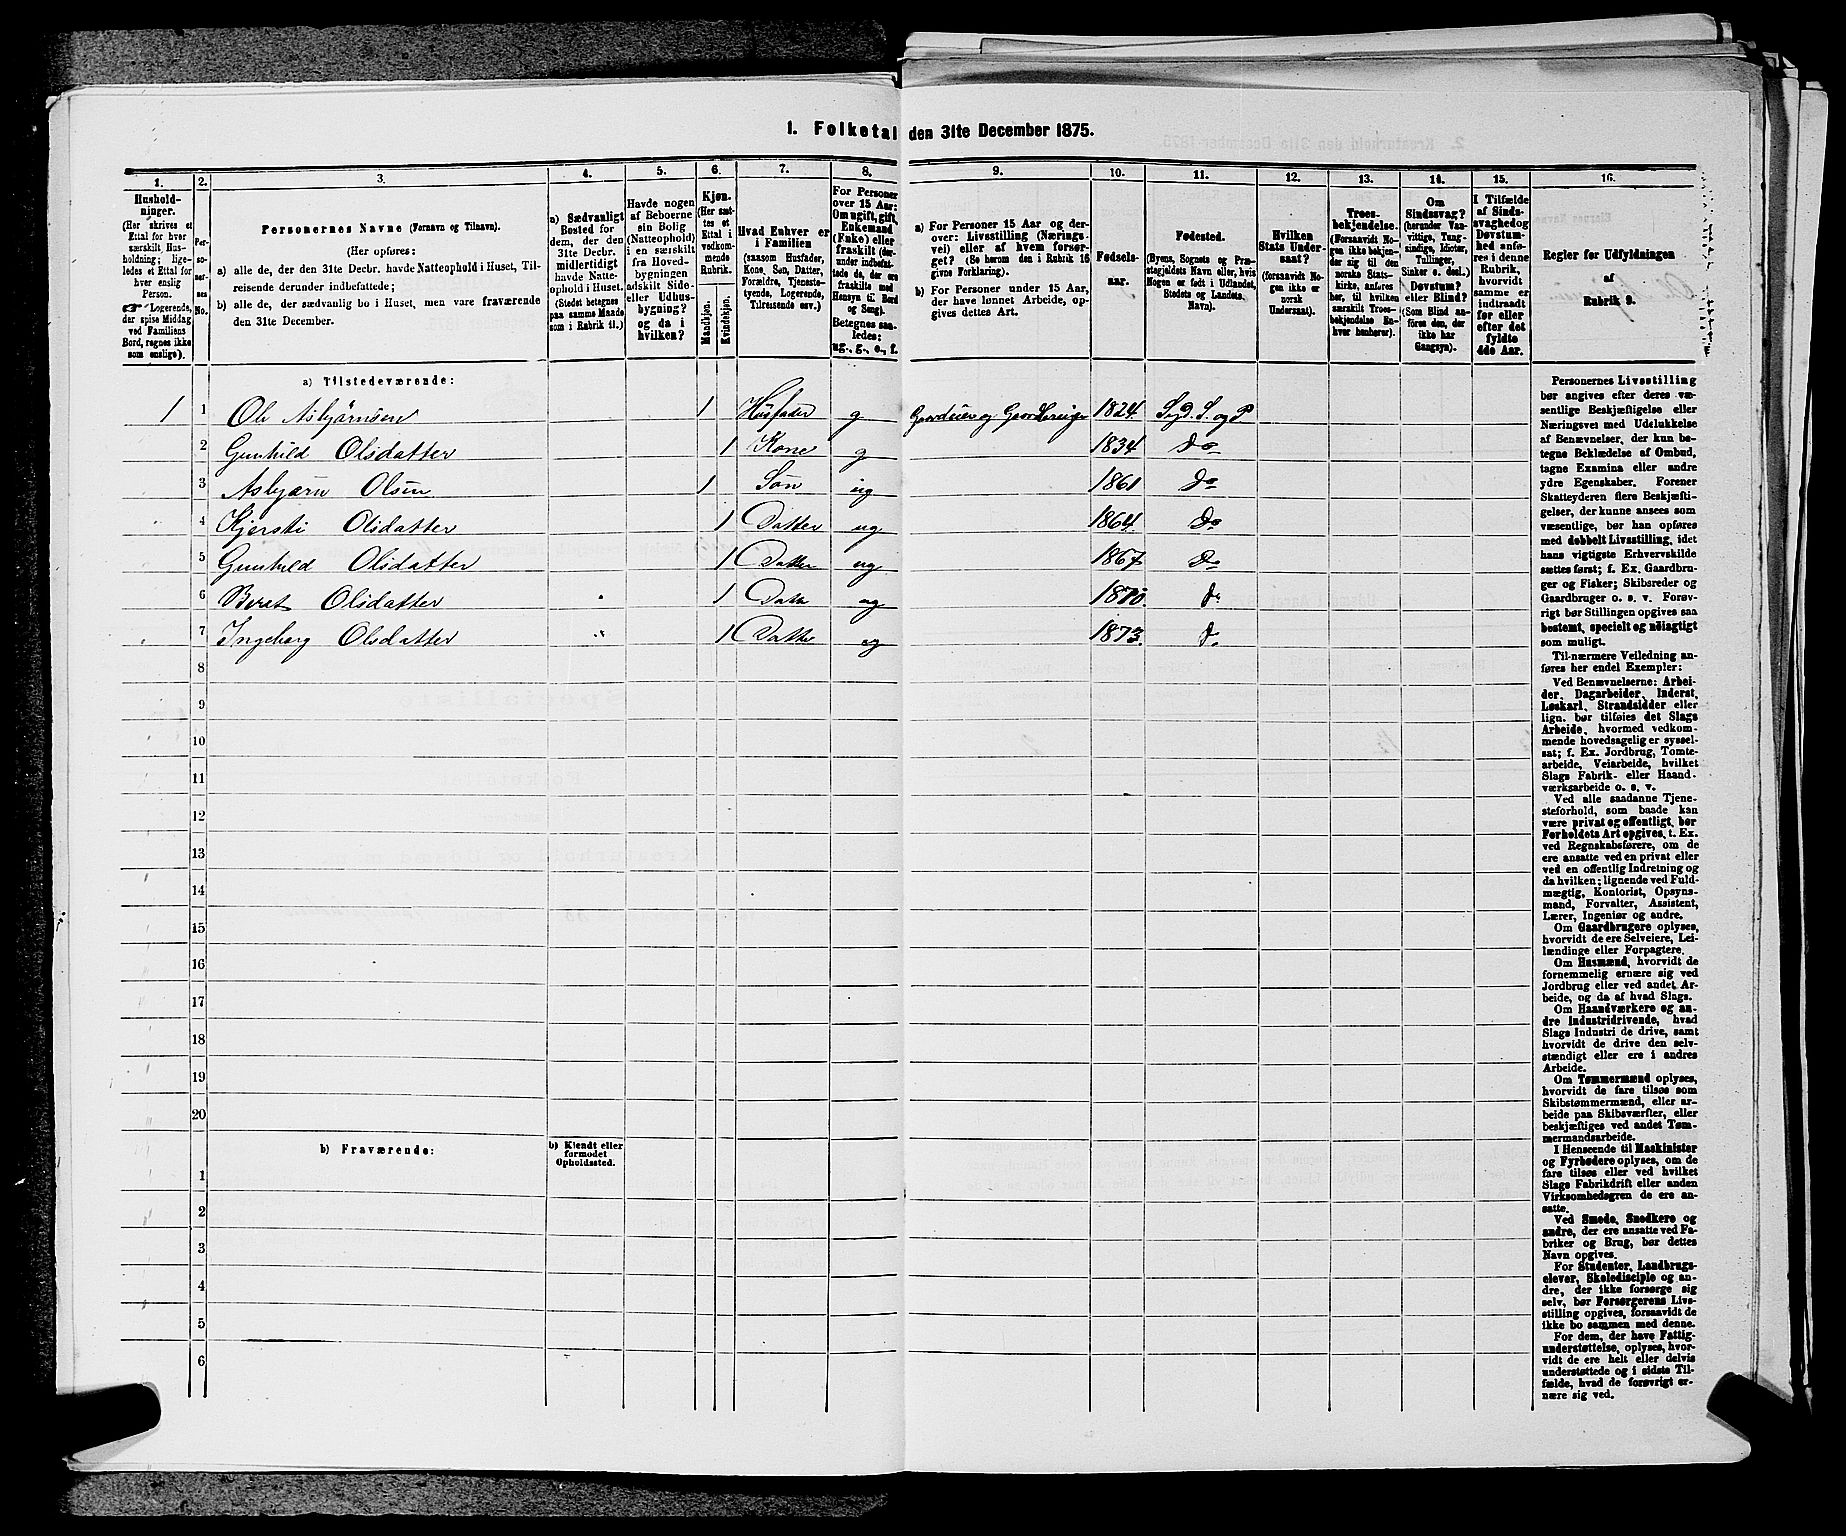 1. Folketal den 31te December 1875.
1.
2.
3.
4.
5.
6.
7.
8.
9.
10.
11.
12.
13.
14.
15.
16.
Hushold-
ninger.
(Her skrives et
Ettal for hver
særskilt Hus-
holdning; lige-
ledes et Ettal for
hver enslig
Person.
☞ Logerende,
der spise Middag
ved Familiens
Bord, regnes ikke
som enslige).
Per-
soner-
nes
No.
Personernes Navne (Fornavn og Tilnavn).
(Her opføres:
a) alle de, der den 31te Decbr. havde Natteophold i Huset, Til-
reisende derunder indbefattede;
b) alle de, der sædvanlig bo i Huset, men vare fraværende
den 31te December.
a) Sædvanligt
Bosted for
dem, der den
31te Decbr.
midlertidigt
havde Natte-
ophold i Huset.
(Stedet betegnes
paa samme Maade
som i Rubrik 11.)
Havde nogen
af Beboerne
sin Bolig
(Natteophold)
i en særskilt
fra Hoved-
bygningen
adskilt Side-
eller Udhus-
bygning?
og da i
hvilken?
Kjøn.
(Her sæt-
tes et
Ettal i
vedkom-
mende
Rubrik.
Mandkjøn.
Kvindekjøn.
Hvad Enhver er
i Familien
(saasom Husfader,
Kone, Søn, Datter,
Forældre, Tjeneste-
tyende, Logerende,
Tilreisende osv.)
For Personer
over 15 Aar:
Om ugift, gift,
Enkemand
(Enke) eller
fraskilt (der-
under indbefat-
tede de, der ere
fraskilte med
Hensyn til Bord
og Seng).
Betegnes saa-
ledes:
ug., g., e., f.
a) For Personer 15 Aar og der-
over: Livsstilling (Nærings-
vei) eller af hvem forsør-
get? (Se herom den i Rubrik 16
givne Forklaring).
b) For Personer under 15 Aar,
der have lønnet Arbeide, op-
gives dettes Art.
Fødsels-
aar.
Fødested.
(Byens, Sognets og Præ-
stegjeldets Navn eller, hvis
Nogen er født i Udlandet,
Stedets og Landets
Navn).
Hvilken
Stats Under-
saat?
(forsaavidt No-
gen ikke er
norsk
Undersaat).
Troes-
bekjendelse.
(Forsaavidt No-
gen ikke bekjen-
der sig til den
norske Stats-
kirke, anføres
her, til hvilken
særskilt Troes-
bekjendelse En-
hver henhører).
Om
Sindssvag?
(herunder Van-
vittige, Tung-
sindige, Idioter,
Tullinger,
Sinker o. desl.)
Døvstum?
eller Blind?
(Som Blind an-
føres den, der
ikke har
Gangsyn).
I Tilfælde
af Sinds-
svaghed og
Døvstum-
hed anfø-
res i denne
Rubrik,
hvorvidt
samme er
indtraadt
før eller
efter det
fyldte
4de Aar.
Regler for Udfyldningen
af
Rubrik 9.
a) Tilstedeværende:
1 1 Ole Asbjørnsen 1 Husfader g Gaardeier og Gaardbruger 1824 S. og P
2 Gunhild Olsdatter 1 Kone g 1834 do
3 Asbjørn Olsen 1 Søn ug 1861 do
4 Kjersti Olsdatter 1 Datter ug 1864 do
5 Gunhild Olsdatter 1 Datter ug 1867 do
6 Beret Olsdatter 1 Datter ug 1870 do
7 Ingeborg Olsdatter 1 Datter ug 1873 do
8
9
10
11
12
13
14
15
16
17
18
19
20
b) Fraværende:
b) Kjendt eller
formodet
Opholdssted.
1
2
3
4
5
6
Personernes Livsstilling
bør angives efter deres væ-
sentlige Beskjæftigelse eller
Næringsvei med Udelukkelse
af Benævnelser, der kun be-
tegne Beklædelse af Ombud,
tagne Examina eller andre
ydre Egenskaber. Forener
Skatteyderen flere Beskjæfti-
gelser, der kunne ansees som
væsentlige, bør han opføres
med dobbelt Livsstilling, idet
hans vigtigste Erhvervskilde
sættes først; f. Ex. Gaardbru-
ger og Fisker; Skibsreder og
Gaardbruger o. s. v. Forøv-
rigt bør Stillingen opgives saa
bestemt, specielt og nøiagtigt
som muligt.
Til nærmere Veiledning an-
føres her endel Exempler:
Ved Benævnelserne: Arbei-
der, Dagarbeider, Inderst,
Løskarl, Strandsidder eller
lign. bør tilføies det Slags
Arbeide, hvormed vedkom-
mende hovedsagelig er syssel-
sat; f. Ex. Jordbrug, Tomte-
arbeide, Veiarbeide, hvilket
Slags Fabrik- eller Haand-
værksarbeide o. s. v.
Ved alle saadanne Tjene-
steforhold, som baade kan
være privat og offentligt, bør
Forholdets Art opgives, t. Ex.
ved Regnskabsførere, om de
ere ansatte ved en privat eller
ved en offentlig Indretning og
da hvilken; lignende ved Fuld-
mægtig, Kontorist, Opsyns-
mand, Forvalter, Assistent,
Lærer, Ingeniør og andre.
Om Gaardbrugere oplyses,
hvorvidt de ere Selveiere, Lei-
lændinge eller Forpagtere.
Om Husmænd, hvorvidt de
fornemmelig ernære sig ved
Jordbrug eller ved andet Ar-
beide, og da af hvad Slags.
Om Haandværkere og an-
dre Industridrivende, hvad
Slags Industri de drive, samt
hvorvidt de drive den selv-
stændigt eller ere i andres
Arbeide.
Om Tømmermænd oplyses,
hvorvidt de fare tilsøs som
Skibstømmermænd, eller ar-
beide paa Skibsværfter, eller
beskjæftiges ved andet Tøm-
mermandsarbeide.
I Henseende til Maskinister
og Fyrbødere oplyses, om de
fare tilsøs eller ved hvilket
Slags Fabrikdrift eller anden
Virksomhedsgren de ere an-
satte.
Ved Smede, Snedkere og
andre, der ere ansatte ved Fa-
briker og Brug, bør dettes
Navn opgives.
For Studenter, Landbrugs-
elever, Skoledisciple og an-
dre, der ikke forsørge sig
selv, bør Forsørgerens Livs-
stilling opgives, forsaavidt de
ikke bo sammen med denne.
For dem, der have Fattig-
understøttelse, oplyses, hvor-
vidt de ere helt eller delvis
understøttede og i sidste Til-
fælde, hvad de forøvrigt er-
nære sig ved.